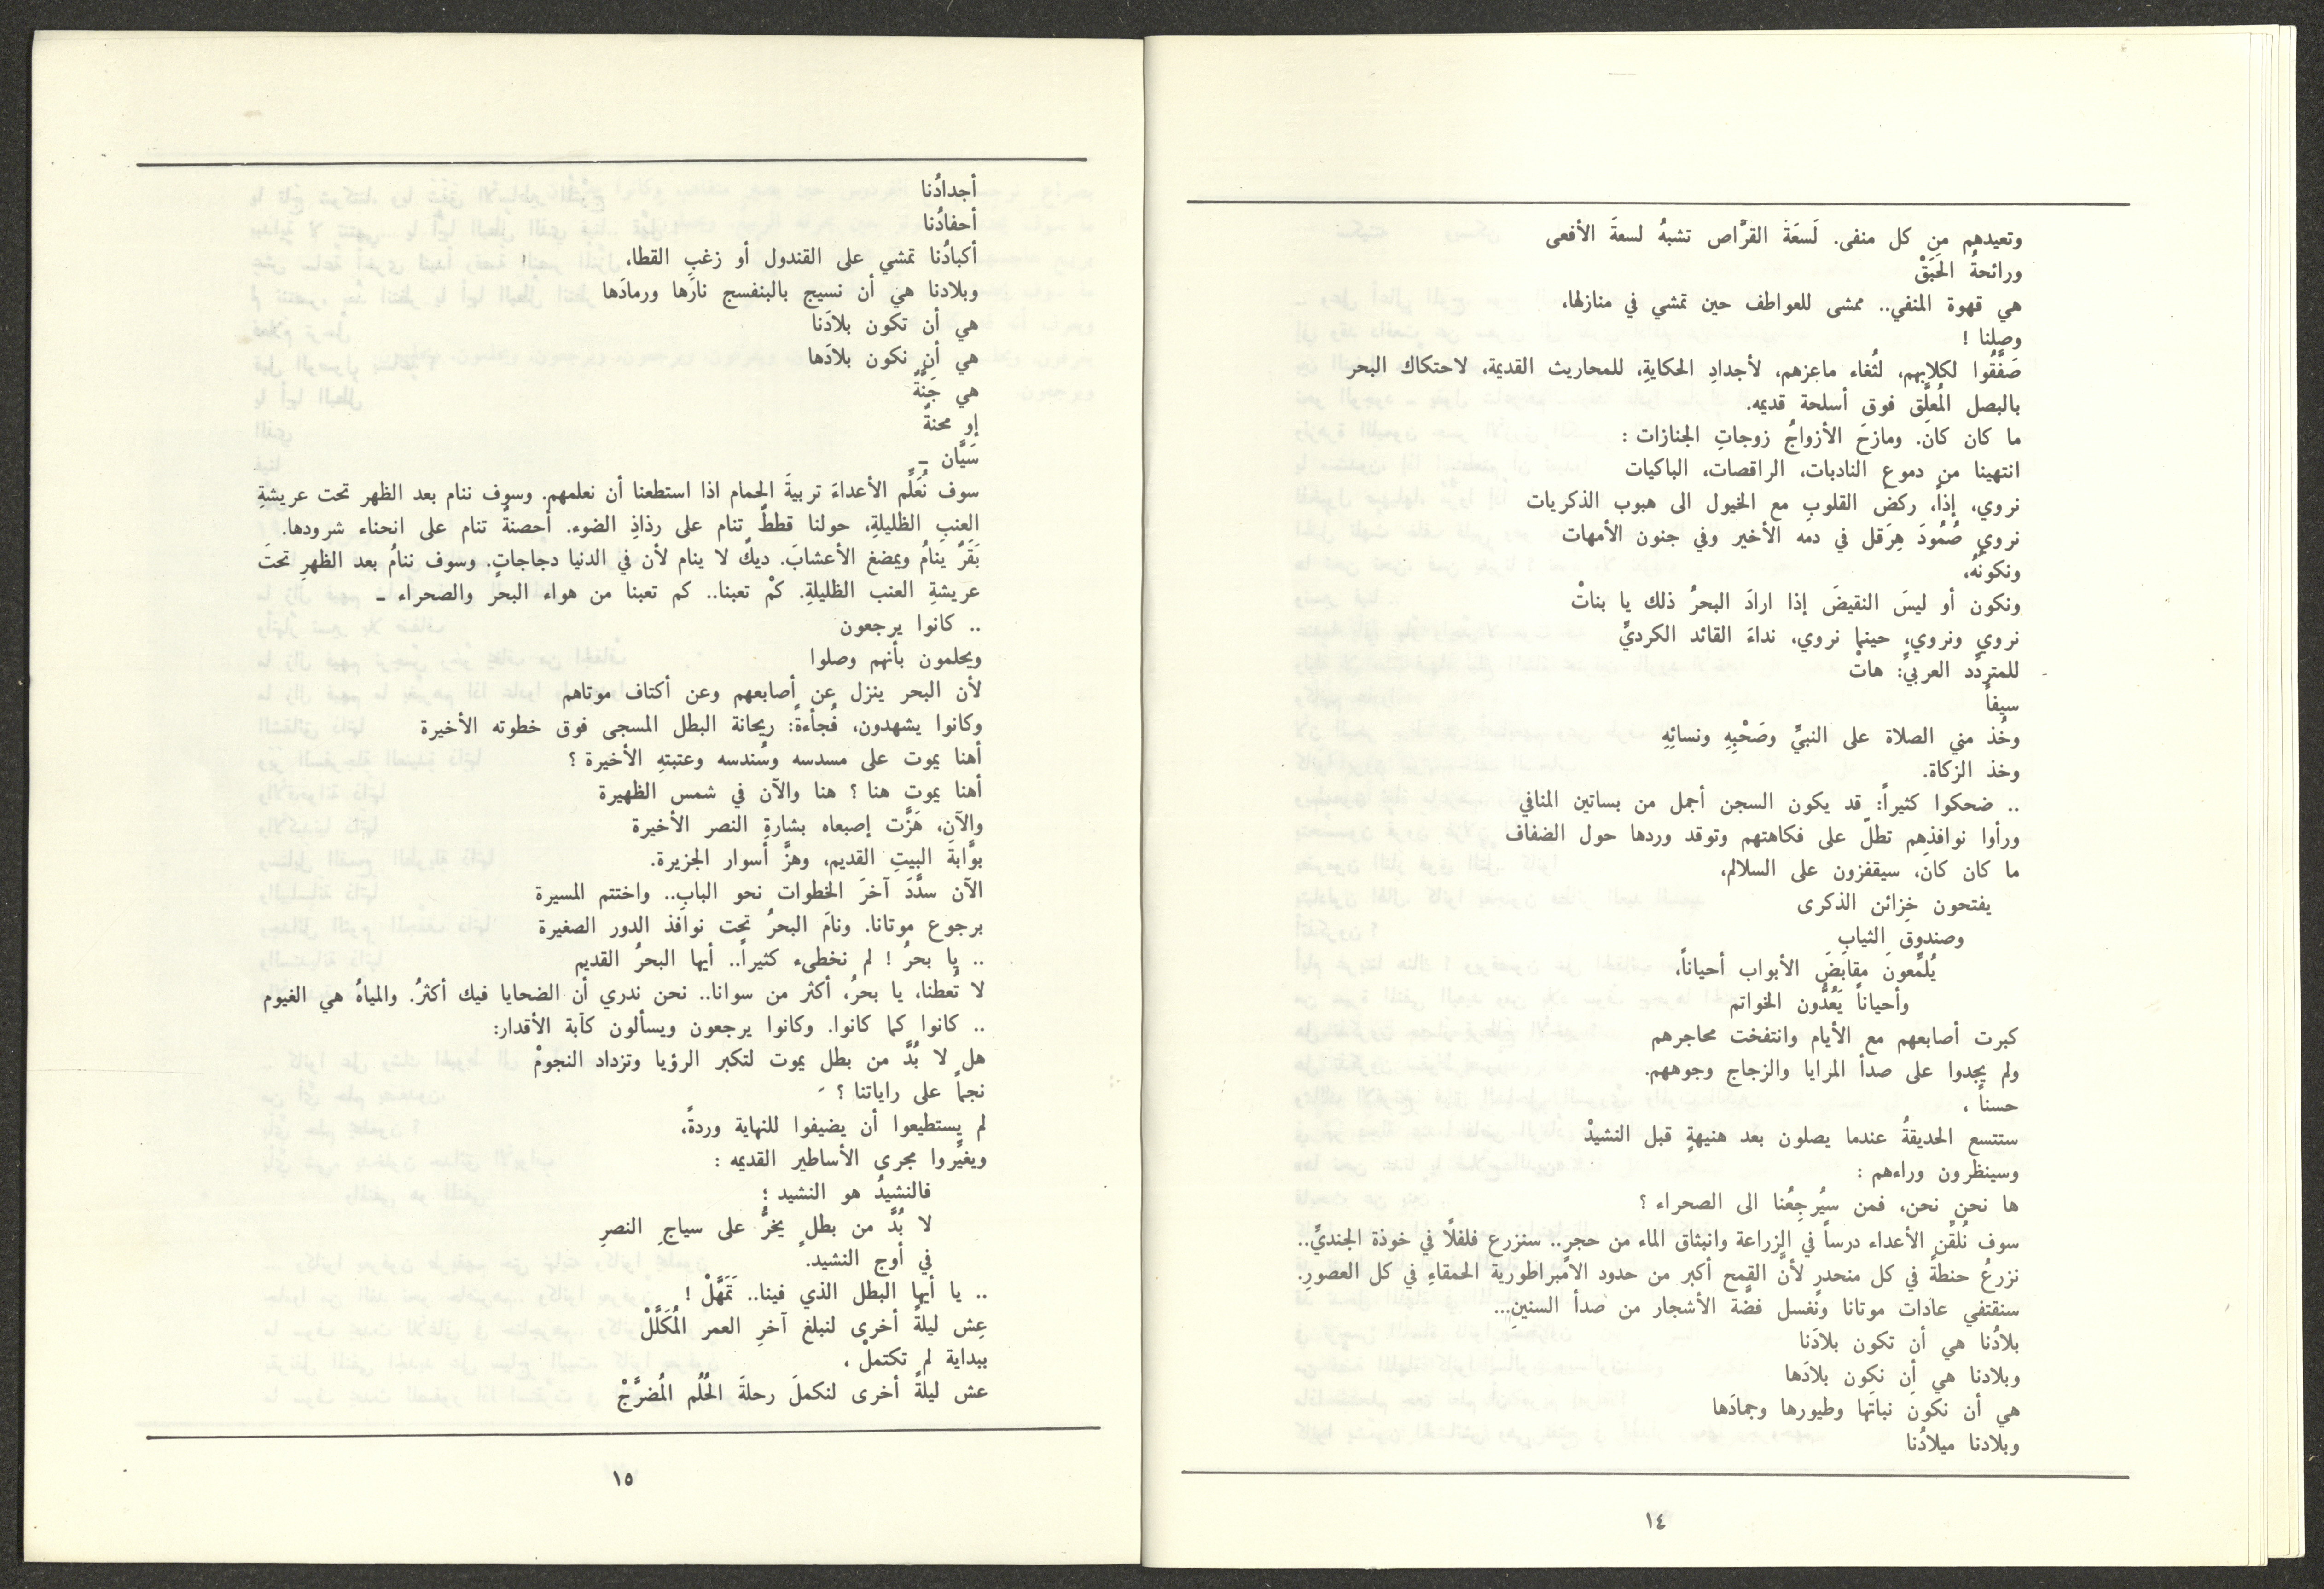 وتعيدهم مِن كل منفى. لَسعَة القرَّاص تشبهُ لسعةَ الأفعى
ورائحةُ الحَبَقْ
هي قهوة المنفي.. ممشى للعواطف حين تمشي في منازلها،
وصلنا !
صَفَّقُوا لكلابهم، لثُغاء ماعِزهم، لأجدادِ الحكايةِ، للمحاريث القديمة، لاحتكاك البحر
بالبصل المُعلَّق فوق أسلحة قديمه.
ما كان كانَ. ومازحَ الأزواجُ زوجاتِ الجنازات :
انتهينا من دموع النادبات، الراقصات، الباكيات
نروي، إذاً، ركضَ القلوبِ مع الخيول الى هبوب الذكريات
نروي صُمُودَ هِرَقل في دمه الأخير وفي جنون الأمهات
ونكونُهُ،
ونكون أو ليسَ النقيضَ إذا ارادَ البحرُ ذلك يا بناتْ
نروي ونروي، حينما نروي، نداءَ القائد الكرديِّ
للمتردِّد العربيِّ: هاتْ
سيفاً
وخُذ مني الصلاة على النبيِّ وصَحْبِهِ ونسائِهِ
وخذ الزكاة.
.. ضحكوا كثيراً: قد يكون السجن أجمل من بساتين المنافي
ورأوا نوافذهم تطلّ على فكاهتهم وتوقد وردها حول الضفاف
ما كان كانَ، سيقفزون على السلالم،
يفتحون خزائن الذكرى
وصندوق الثيابِ
يُلمِّعونَ مقابَضَ الأبواب أحياناً،
وأحياناً يَعُدُّون الخواتم
كبرت أصابعهم مع الأيام وانتفخت محاجرهم
ولم يجدوا على صدأ المرايا والزجاج وجوههم.
حسناً ،
ستتسع الحديقةُ عندما يصلون بعد هنيهةٍ قبل النشيدْ
وسينظرون وراءهم :
ها نحن نحن، فمن سيُرجِعُنا الى الصحراء ؟
سوف نُلقِّن الأعداء درساً في الزراعة وانبثاق الماء من حجر.. سنزرع فلفلًا في خوذة الجنديِّ..
نزرعُ حنطةً في كل منحدرٍ لأنَّ القمح أكبر من حدود الامبراطورية الحمقاءِ في كل العصورِ.
سنقتفي عادات موتانا ونغسل فضَّة الأشجار من صدأ السنينِ...
بلادُنا هي أن تكون بلادَنا
وبلادنا هي أن نكون بلادَها
هي أن نكونَ نباتَها وطيورها وجمادَها
وبلادنا ميلادُنا
١٤
أجدادُنا
أحفادُنا
أكبادُنا تمشي على القندول أو زغبِ القطا،
وبلادنا هي أن نسيج بالبنفسج نارَها ورمادَها
هي أن تكون بلادَنا
هي أن نكون بلادَها
هي جَنَّةٌ
إو محنةٌ
سَيَّان –
سوف نُعَلِّم الأعداءَ تربيةَ الحمام اذا استطعنا أن نعلمهم. وسوف ننام بعد الظهر تحت عريشةِ
العنبِ الظليلةِ، حولنا قططٌ تنام على رذاذِ الضوء. أحصنةٌ تنام على انحناء شرودها.
بَقَرٌ ينامُ ويمضغ الأعشابَ. ديكٌ لا ينام لأن في الدنيا دجاجاتٍ. وسوف ننامُ بعد الظهرِ تحتَ
عريشةِ العنب الظليلةِ. كمْ تعبنا.. كم تعبنا من هواء البحر والصحراء –
.. كانوا يرجعون
ويحلمون بأنهم وصلوا
لأن البحر ينزل عن أصابعهم وعن أكتاف موتاهم
وكانوا يشهدون، فُجأةً: ريحانة البطل المسجى فوق خطوته الأخيرة
أهنا يموت على مسدسه وسُندسه وعتبتهِ الأخيرة ؟
أهنا يموت هنا ؟ هنا والآن في شمس الظهيرة
والآن، هَزَّت إصبعاه بشارةِ النصر الأخيرة
بوَّابةَ البيتِ القديم، وهزَّ أسوار الجزيرة.
الآن سدَّدَ آخرَ الخطوات نحو البابِ.. واختتم المسيرة
برجوع موتانا. ونامَ البحرُ تحت نوافذ الدور الصغيرة
.. يا بحرُ ! لم نخطىء كثيراً.. أيها البحرُ القديم
لا تُعطنا، يا بحرُ، أكثر من سوانا.. نحن ندري أن الضحايا فيك أكثرُ. والمياهُ هي الغيوم
.. كانوا كما كانوا. وكانوا يرجعون ويسألون كآبة الأقدار:
هل لا بُدَّ من بطل يموت لتكبر الرؤيا وتزداد النجومْ
نجماً على راياتنا ؟
لم يستطيعوا أن يضيفوا للنهاية وردةً،
ويغيِّروا مجرى الأساطير القديمه :
فالنشيدُ هو النشيد ؛
لا بُدَّ من بطلٍ يخرُّ على سياجِ النصرِ
في أوج النشيد.
.. يا أيها البطل الذي فينا.. تَمَهَّلْ !
عِش ليلةً أخرى لنبلغ آخرِ العمر المُكَلَّلْ
ببداية لم تكتملْ ،
عش ليلةً أخرى لنكملَ رحلةَ الحُلُم المُضرَّجْ
١٥